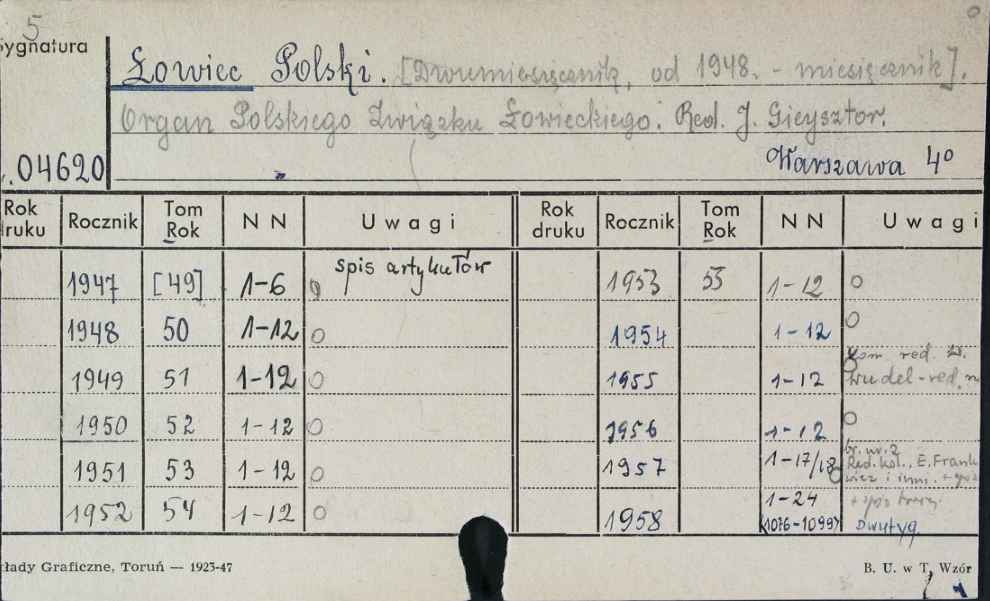 5
Sygnatura
Łowiec Polski. [Dwumiesięcznik, od 1948. - miesięcznik].
Organ Polskiego Związku Łowieckiego. Red. J. Gieysztor.
.04620
"
Warszawa 4°
Rok druku Rocznik Tom Rok N N Uwagi Rok druku Rocznik Tom Rok N N Uwagi
1947 [49] 1-6 spis artykułów 1953 55 1-12 o
1948 50 1-12 o 1954 1-12 o
1949 51 1-12 o 1955 1-12 red. -red. n
1950 52 1-12 o 1956 1-12 o
1951 53 1-12 o 1957 1-17/18 br. nr. 2 Red. kol., E. Frank
wicz i inni.
1952 54 1-12 o 1958 1-24 (1076-1099) + spis Dwutyg.
łady Graficzne, Toruń — 1923-47
B. U. w T, Wzór